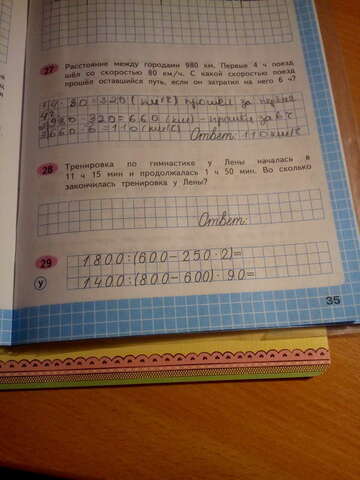 27 Расстояние между городами 980 км. Первые 4 ч поезд
шёл со скоростью 80 км/ч. С какой скоростью поезд
прошёл оставшийся путь, если он затратил на него 6 ч?
80=320 (км/ч) прошёл за первые
4ч
980-320=660 (км) - прошёл за 6 ч
660:6=110 (км/ч)
Ответ: 110 км/ч
28 Тренировка по гимнастике у Лены началась в
11 ч 15 мин и продолжалась 1 ч 50 мин. Во сколько
закончилась тренировка у Лены?
Ответ:
29 1800:(600-250·2)=
У 1400:(800-600)·90=
35